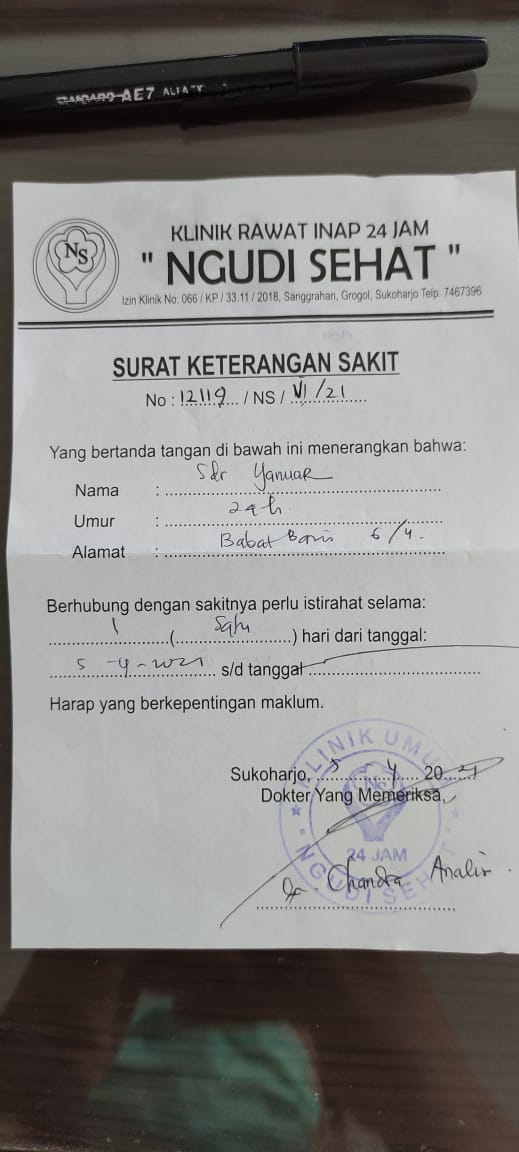 STANDARD AE7 ALFATIP
NS
KLINIK RAWAT INAP 24 JAM
" NGUDI SEHAT "
Izin Klinik No: 066 / KP / 33.11 / 2018, Sanggrahan, Grogol, Sukoharjo Telp. 7467396
SURAT KETERANGAN SAKIT
No : 12119 / NS / VI / 21
Yang bertanda tangan di bawah ini menerangkan bahwa:
Nama : Sdr Yanuar
Umur : 24 th
Alamat : Babat 6/4.
Berhubung dengan sakitnya perlu istirahat selama:
1 (Satu) hari dari tanggal:
5-4-2021 s/d tanggal
Harap yang berkepentingan maklum.
Sukoharjo, 5 4 2021
Dokter Yang Memeriksa,
KLINIK UMUM
NS
24 JAM
NGUDI SEHAT
dr. Chandra